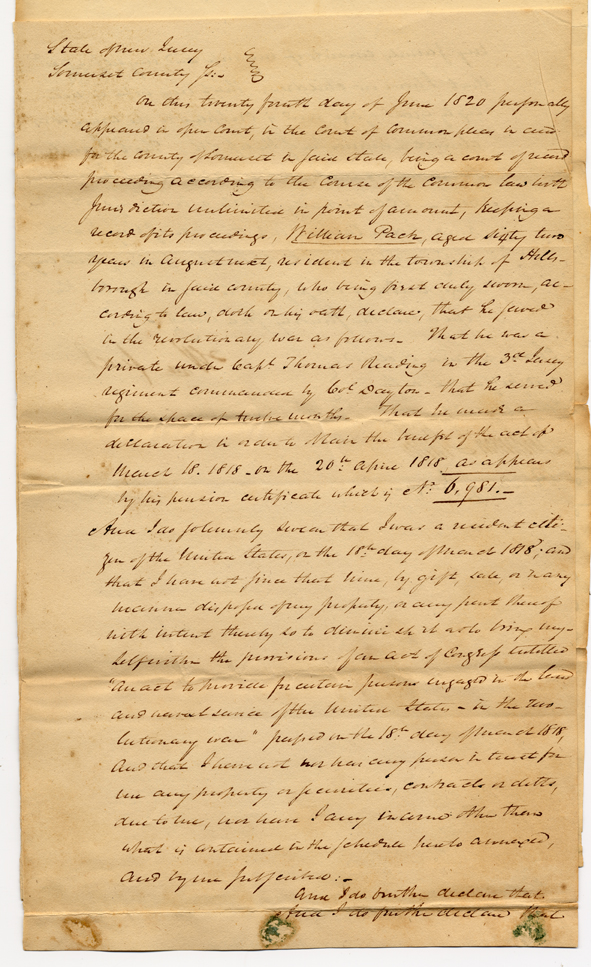 State of new Jersey
Somerset County Ss:-
On this twenty fourth day of June 1820 personally
appeared in open Court, in the Court of Common pleas in and
for the county of Somerset in said state, being a court of record
proceeding according to the Course of the Common law with
Jurisdiction unlimited in point of amount, keeping a
record of its proceedings, William Pack, aged sixty two
years in August next, resident in the township of Hills-
borough in said county, who being first duly sworn, ac-
cording to law, doth on his oath, declare, that he served
in the revolutionary war as follows - That he was a
private under Capt. Thomas Reading in the 3rd Jersey
regiment commanded by Col. Dayton - that he served
for the space of twelve months - That he made a
declaration in order to obtain the benefit of the act of
March 18. 1818 - on the 20th April 1818, as appears
by his pension certificate which is No. 6,981.-
And I do solemnly swear that I was a resident citi-
zen of the United States, on the 18th day of March 1818; and
that I have not since that time, by gift, sale, or in any
manner disposed of my property, or any part thereof
with intent thereby so to diminish it as to bring my-
self within the provisions of an act of Congress entitled
"An act to provide for certain persons engaged in the land
and naval service of the United States - in the revo-
lutionary war" passed on the 18th day of March 1818,
And that I have not nor has any person in trust for
me any property or securities, contracts or debts,
due to me, nor have I any income other than
what is contained in the schedule hereto annexed,
and by me subscribed:-
And I do further declare that
And I do further declare that